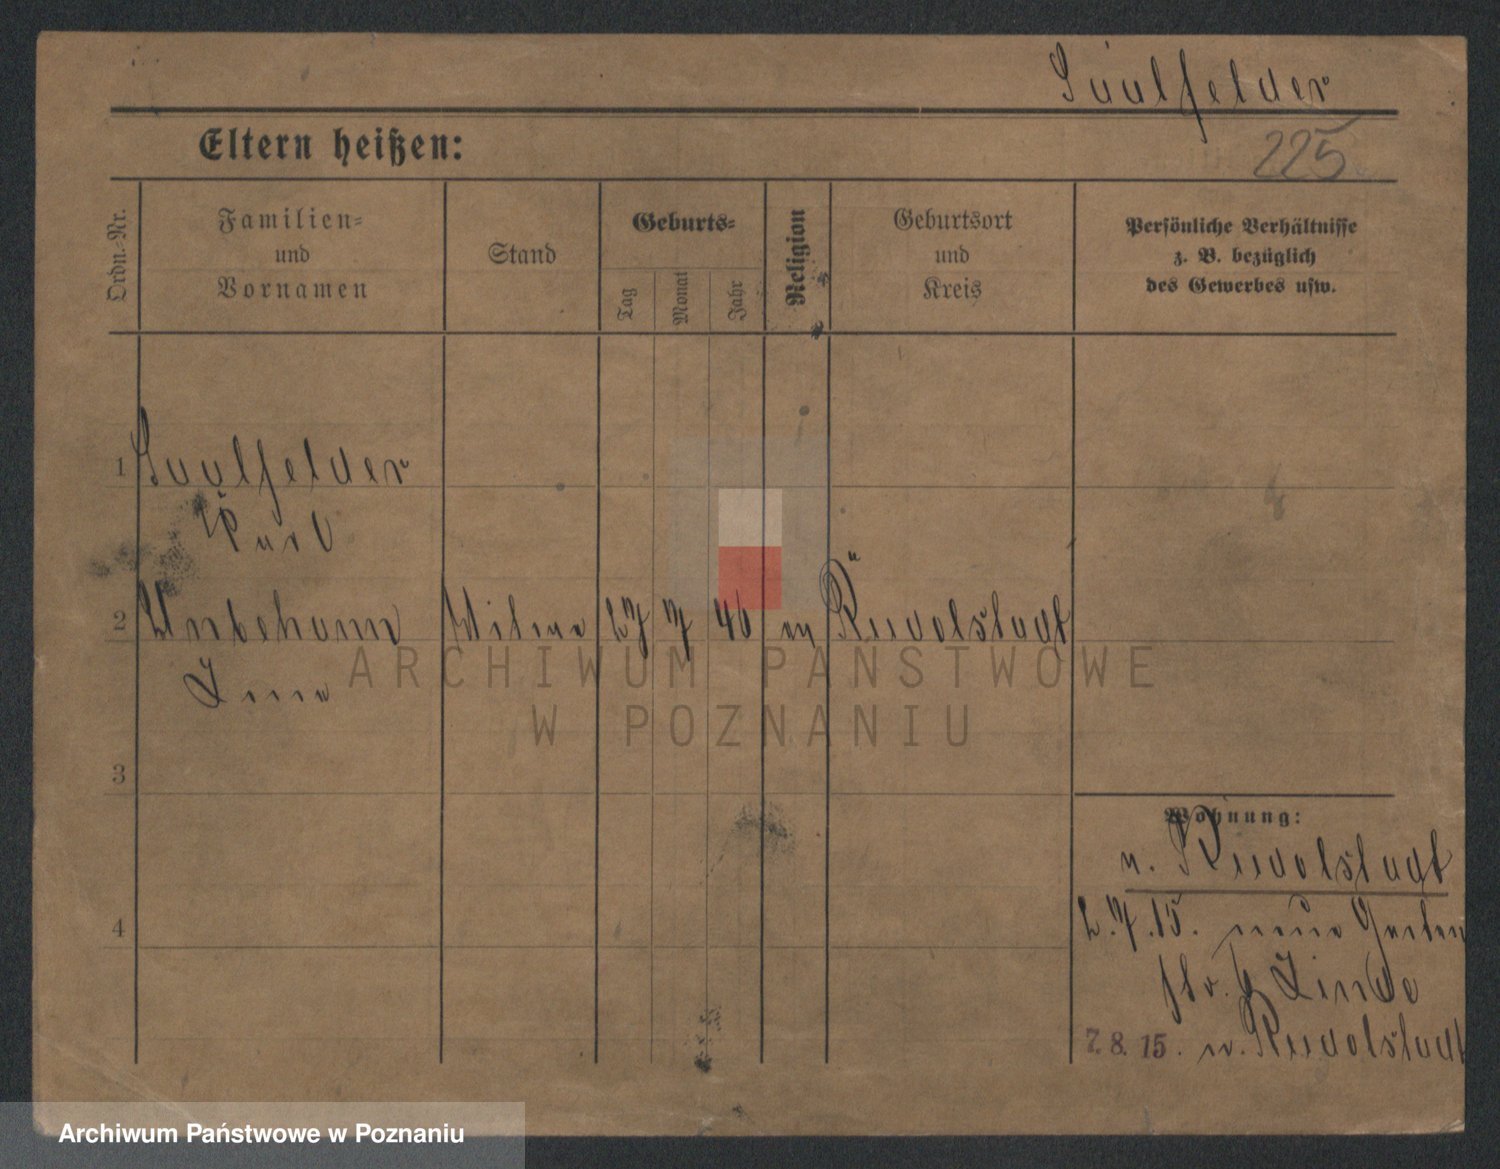 Saalfelder
225
Eltern heißen:
Ordn.-Nr.
Familien-
und
Vornamen
Stand
Geburts-
Tag
Monat
Jahr
Religion
Geburtsort
und
Kreis
Persönliche Verhältnisse
z. B. bezüglich
des Gewerbes usw.
1 Saalfelder
Karl
2 Unbehaun Witwe 27 7 46 ev Rudolstadt
3
4
Wohnung:
n. Rudolstadt
2.7.15. neue Garten
str. Linde
7.8.15. n. Rudolstadt
ARCHIWUM PAŃSTWOWE
W POZNANIU
Archiwum Państwowe w Poznaniu